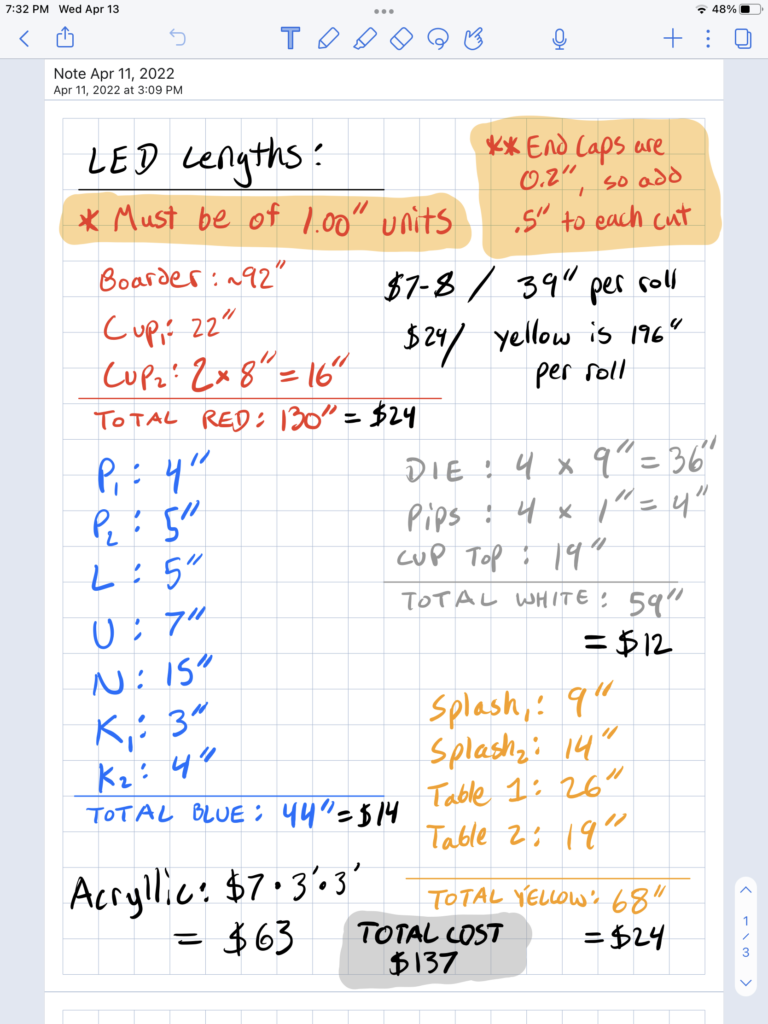 7:32 PM Wed Apr 13
48%
Note Apr 11, 2022
Apr 11, 2022 at 3:09 PM
LED Lengths:
** End Caps are
0.2", so add
.5" to each cut
* Must be of 1.00" units
Boarder: ~92"
Cup₁: 22"
Cup₂: 2 x 8" = 16"
TOTAL RED: 130" = $24
$7-8 / 39" per roll
$24/ yellow is 196"
per roll
P₁: 4"
P₂: 5"
L: 5"
U: 7"
N: 15"
K₁: 3"
K₂: 4"
TOTAL BLUE: 44" = $14
DIE: 4 x 9" = 36"
Pips: 4 x 1" = 4"
CUP TOP: 19"
TOTAL WHITE: 59"
= $12
Splash₁: 9"
Splash₂: 14"
Table 1: 26"
Table 2: 19"
TOTAL YELLOW: 68"
= $24
Acryllic: $7 · 3' · 3'
= $63
TOTAL COST
$137
1
/
3